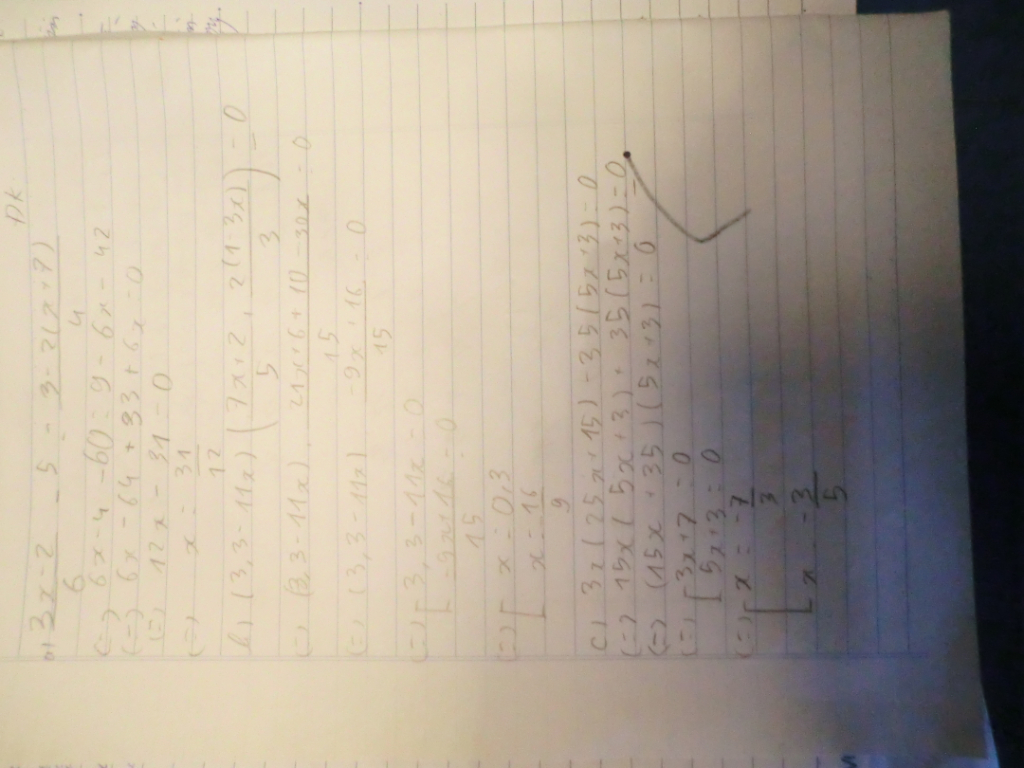 ĐK
a) 3x-2/6 - 5 = 3-2(x+7)/4
(=) 6x-4-60 = 9-6x-42
(=) 6x-64+33+6x=0
(=) 12x-31=0
(=) x = 31/12
b) (3,3-11x)(7x+2/5 + 2(1-3x)/3) = 0
(=) (3,3-11x) 21x+6+10-30x/15 = 0
(=) (3,3-11x) -9x+16/15 = 0
(=) [3,3-11x=0
[-9x+16/15=0
(=) [x=0,3
[x=16/9
c) 3x(25x+15)-35(5x+3)=0
(=) 15x(5x+3)+35(5x+3)=0
(=) (15x+35)(5x+3)=0
(=) [3x+7=0
[5x+3=0
(=) [x=-7/3
[x -3/5